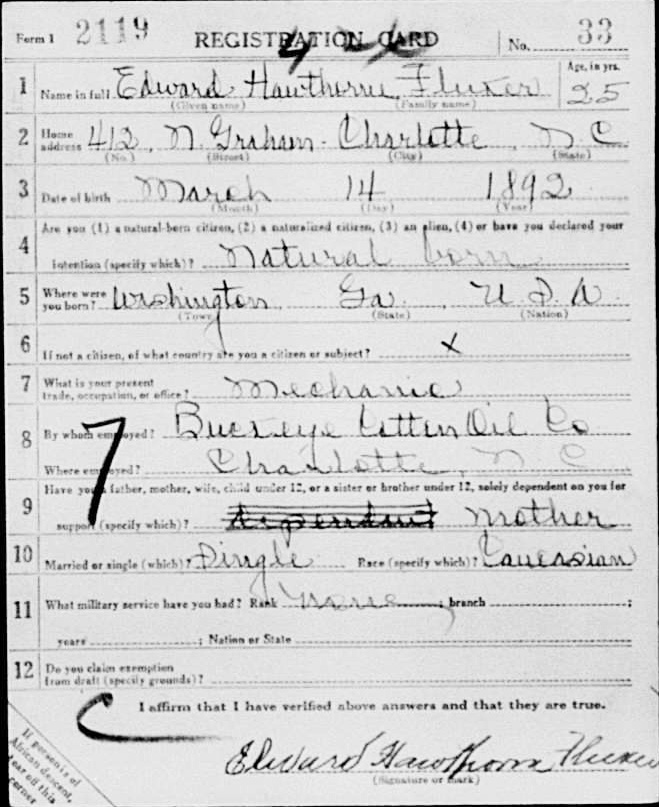 Form 1 2119 REGISTRATION CARD No. 33
1 Name in full Edward Hawthorne Fluker Age, in yrs. 25
(Given name) (Family name)
2 Home address 412, N. Graham Charlotte, N C
(No.) (Street) (City) (State)
3 Date of birth March 14 1892
(Month) (Day) (Year)
4 Are you (1) a natural-born citizen, (2) a naturalized citizen, (3) an alien, (4) or have you declared your
intention (specify which)? Natural born
5 Where were you born? Washington, Ga. U S A
(Town) (State) (Nation)
6 If not a citizen, of what country are you a citizen or subject? X
7 What is your present trade, occupation, or office? Mechanic
8 By whom employed? Buckeye Cotton Oil Co
Where employed? Charlotte, N C
7
9 Have you a father, mother, wife, child under 12, or a sister or brother under 12, solely dependent on you for
support (specify which)? dependant Mother
10 Married or single (which)? Single Race (specify which)? Caucasian
11 What military service have you had? Rank None ; branch ;
years ; Nation or State
12 Do you claim exemption
from draft (specify grounds)?
I affirm that I have verified above answers and that they are true.
Edward Hawthorne Fluker
(Signature or mark)
If person is of
African descent,
tear off this
corner